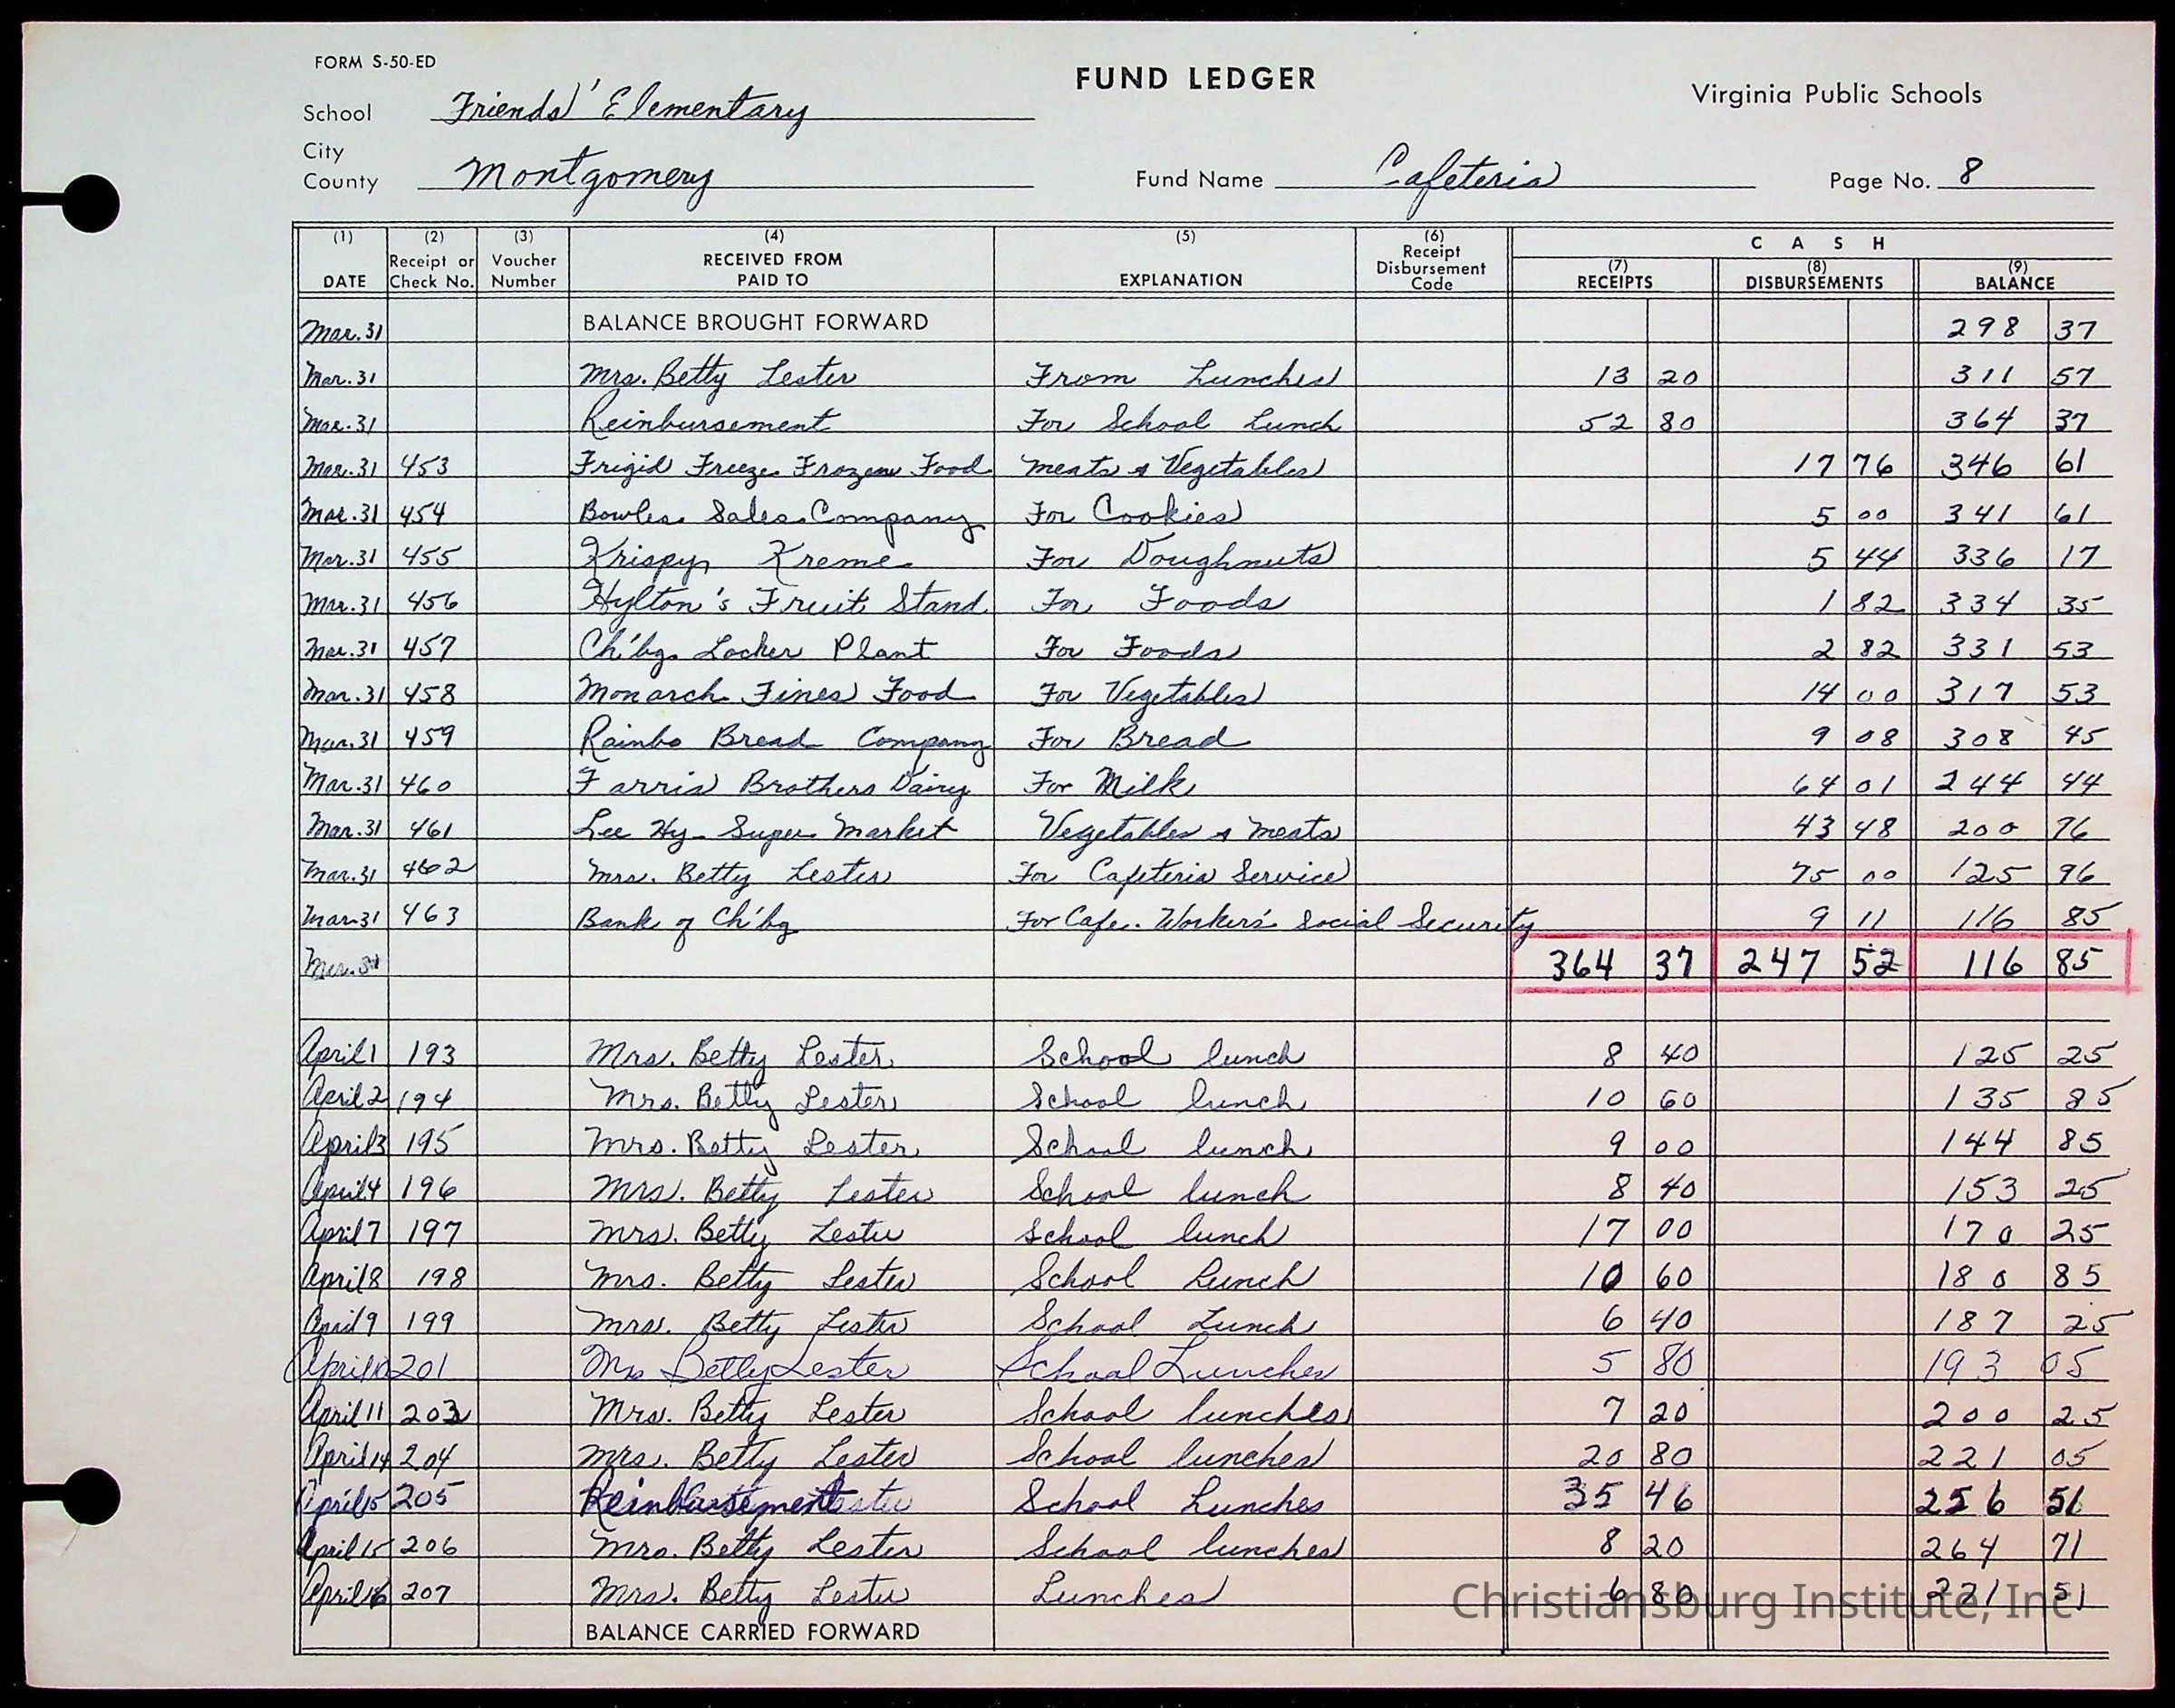 FORM S-50-ED
FUND LEDGER
Virginia Public Schools
School Friends' Elementary
City
County Montgomery Fund Name Cafeteria Page No. 8
(1) (2) (3) (4) (5) (6) C A S H
DATE Receipt or Check No. Voucher Number RECEIVED FROM PAID TO EXPLANATION Receipt Disbursement Code (7) RECEIPTS (8) DISBURSEMENTS (9) BALANCE
Mar. 31 BALANCE BROUGHT FORWARD 298 37
Mar. 31 Mrs. Betty Lester From Lunches 13 20 311 57
Mar. 31 Reinbursement For School Lunch 52 80 364 37
Mar. 31 453 Frigid Freeze Frozen Food Meats & Vegetables 17 76 346 61
Mar. 31 454 Bowles Sales Company For Cookies 5 00 341 61
Mar. 31 455 Krispy Kreme For Doughnuts 5 44 336 17
Mar. 31 456 Hylton's Fruit Stand For Foods 1 82 334 35
Mar. 31 457 Ch'bg Locker Plant For Foods 2 82 331 53
Mar. 31 458 Monarch Fines Food For Vegetables 14 00 317 53
Mar. 31 459 Rainbo Bread Company For Bread 9 08 308 45
Mar. 31 460 Farris Brothers Dairy For Milk 64 01 244 44
Mar. 31 461 Lee Hy Super Market Vegetables & Meats 43 48 200 96
Mar. 31 462 Mrs. Betty Lester For Cafeteria Service 75 00 125 96
Mar. 31 463 Bank of Ch'bg For Cafe. Worker's Social Security 9 11 116 85
Mar. 31 364 37 247 52 116 85
April 1 193 Mrs. Betty Lester School lunch 8 40 125 25
April 2 194 Mrs. Betty Lester School lunch 10 60 135 85
April 3 195 Mrs. Betty Lester School lunch 9 00 144 85
April 4 196 Mrs. Betty Lester School lunch 8 40 153 25
April 7 197 Mrs. Betty Lester School lunch 17 00 170 25
April 8 198 Mrs. Betty Lester School Lunch 10 60 180 85
April 9 199 Mrs. Betty Lester School Lunch 6 40 187 25
April 10 201 Mrs Betty Lester School Lunches 5 80 193 05
April 11 203 Mrs. Betty Lester School lunches 7 20 200 25
April 14 204 Mrs. Betty Lester School lunches 20 80 221 05
April 15 205 Reinbursement School Lunches 35 46 256 51
April 15 206 Mrs. Betty Lester School lunches 8 20 264 71
April 16 207 Mrs. Betty Lester Lunches 6 80 271 51
BALANCE CARRIED FORWARD
Christiansburg Institute, Inc